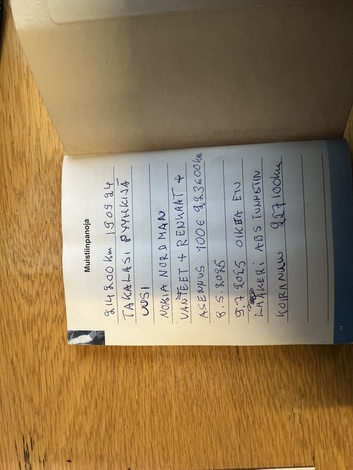 Muistiinpanoja
214200 km 19.09.24
TAKALASI PYYHKIJÄ
UUSI
NOKIA NORDMAN
VANTEET & RENKAAT +
ASENNUS 100€ 223600km
8.5.2025
9.7.2025 OIKEA ETU
LAAKERI ABS TUNNISTIN
KOIRANUU 227100km